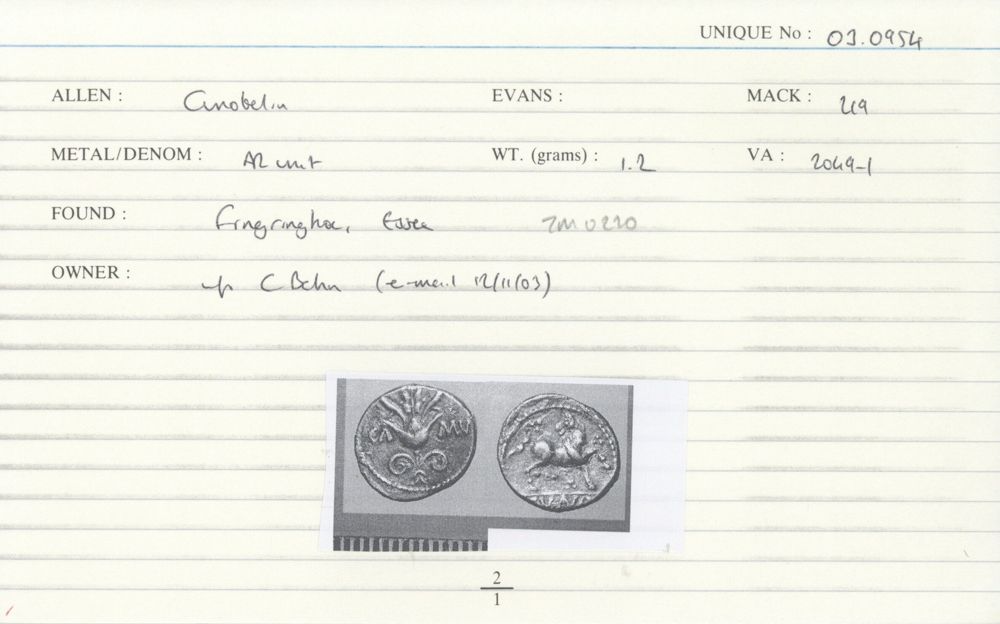 UNIQUE No : 03.0954
ALLEN : Cunobelin EVANS : MACK : 219
METAL/DENOM : AR unit WT. (grams) : 1.2 VA : 2049-1
FOUND : Fingringhoe, Essex TM0220
OWNER : C (e-mail 12/11/03)
CA MV
2
1